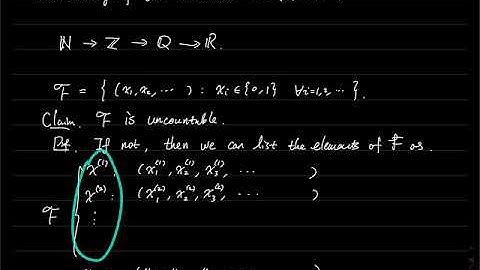 ℕ → ℤ → ℚ → ℝ.
𝓕 = { (x₁, x₂, ⋯) : xᵢ ∈ {0,1} ∀i=1,2,⋯ }.
Claim. 𝓕 is uncountable.
Pf. If not, then we can list the elements of 𝓕 as.
x⁽¹⁾ : (x₁⁽¹⁾, x₂⁽¹⁾, x₃⁽¹⁾, ⋯ )
x⁽²⁾ : (x₁⁽²⁾, x₂⁽²⁾, x₃⁽²⁾, ⋯ )
𝓕 { ⋮